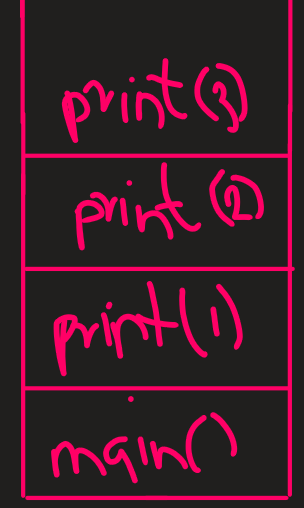 print(3)
print(2)
print(1)
main()